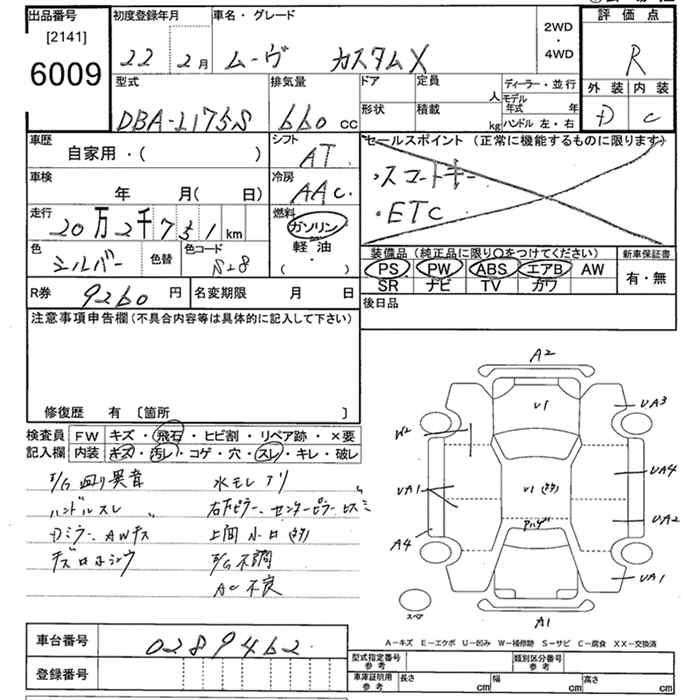 出品番号
[2141]
6009
初度登録年月
22 2月
車名・グレード
ムーヴ カスタムX
2WD
・
4WD
評価点
R
外装 内装
D C
型式
DBA-L175S
排気量
660 cc
ドア
定員
人
ディーラー・並行
モデル年式 年
形状
積載
kg
ハンドル 左・右
車歴
自家用・( )
シフト
AT
セールスポイント (正常に機能するものに限ります)
・スマートキー
・ETC
車検
年 月( 日)
冷房
AAC
走行
20万2千751 km
燃料
ガソリン
軽油・
( )
色
シルバー
色替
色コード
S28
装備品 (純正品に限り○をつけてください)
新車保証書
PS PW ABS エアB AW
SR ナビ TV カワ
有・無
R券 9260 円
名変期限 月 日
後日品
注意事項申告欄 (不具合内容等は具体的に記入して下さい)
修復歴 有 [箇所 ]
検査員
記入欄
FW キズ・飛石・ヒビ割・リペア跡・×要
内装 キズ・汚レ・コゲ・穴・スレ・キレ・破レ
E/G回り異音 水モレアリ
ハンドルスレ
Dミラー、AWキズ
E/G不調
AC不良
A2
U1
UA3
W2
UA4
UA1
UA2
A4
UA1
A1
スペア
A-キズ E-エクボ U-凹み W-補修跡 S-サビ C-腐食 XX-交換済
車台番号 0289462
登録番号
型式指定番号
参考
類別区分番号
参考
車庫証明用
参考
長さ cm
幅 cm
高さ cm